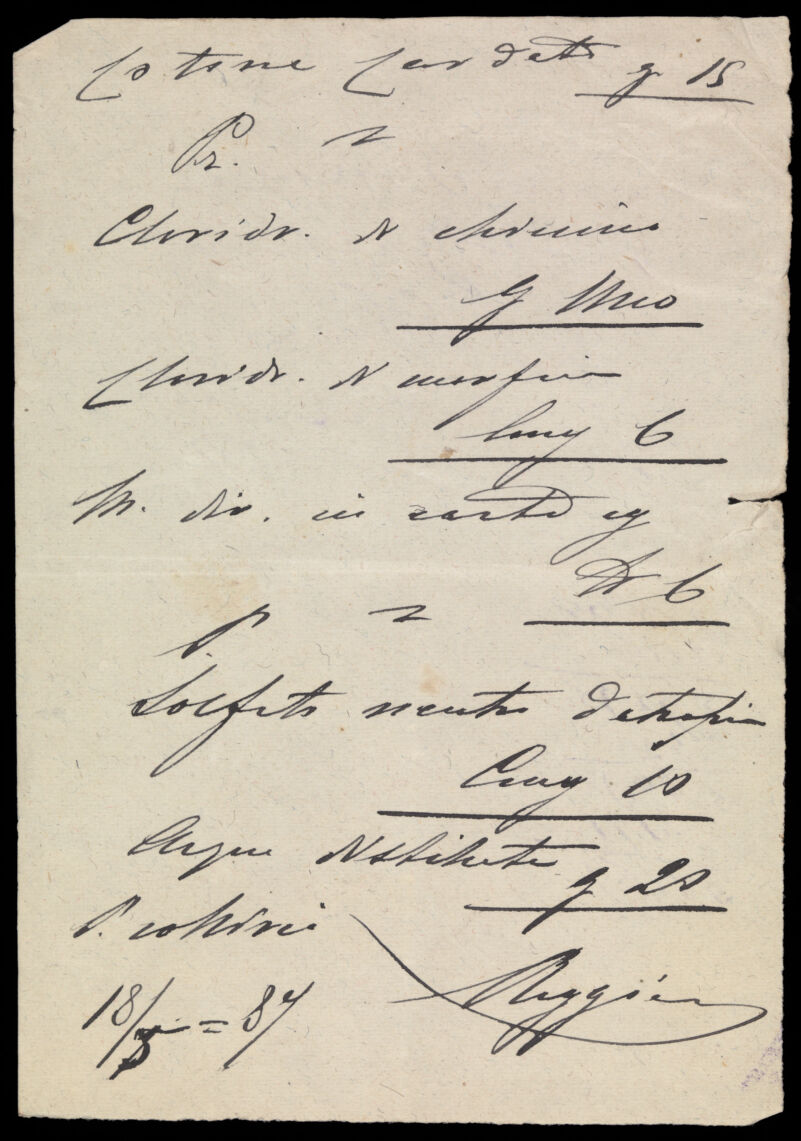 Cotone Cardato g 15
Pr.
Cloridr. di chinino
g Uno
Cloridr. di morfina
Cmg 6
M. div. in cart eg
N 6
P.
Solfato neutro d'atropina
Cmg 10
Acqua distillata
g 20
P. collirio
18/ = 87